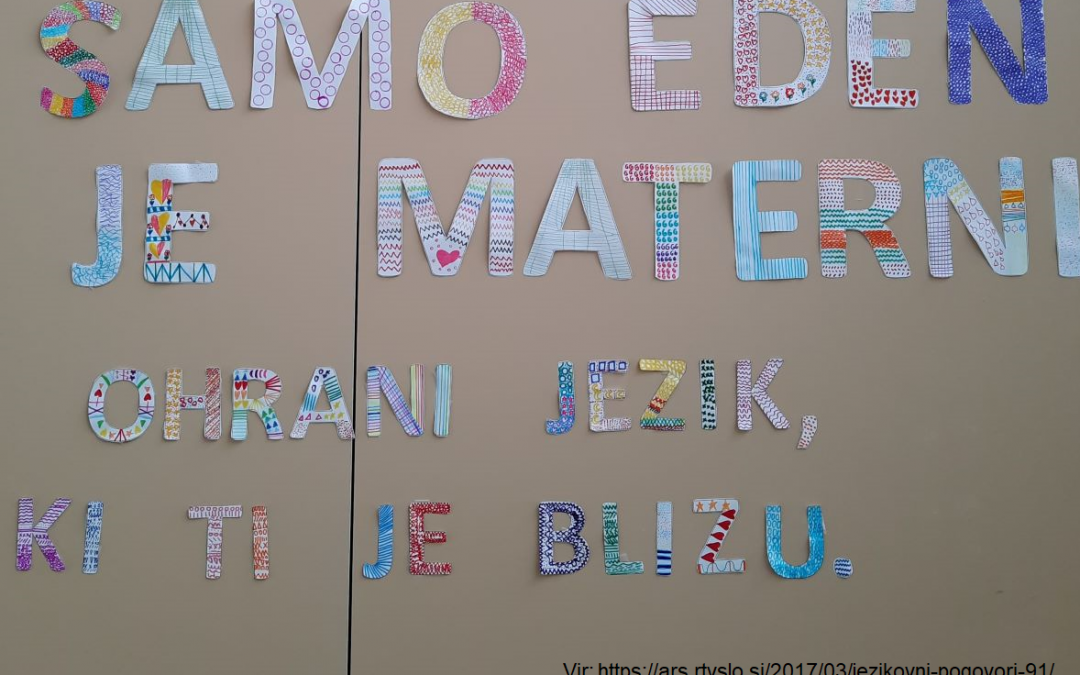 SAMO EDEN
JE MATERNI
OHRANI JEZIK,
KI TI JE BLIZU.
Vir: https://ars.rtvslo.si/2017/03/jezikovni-pogovori-91/